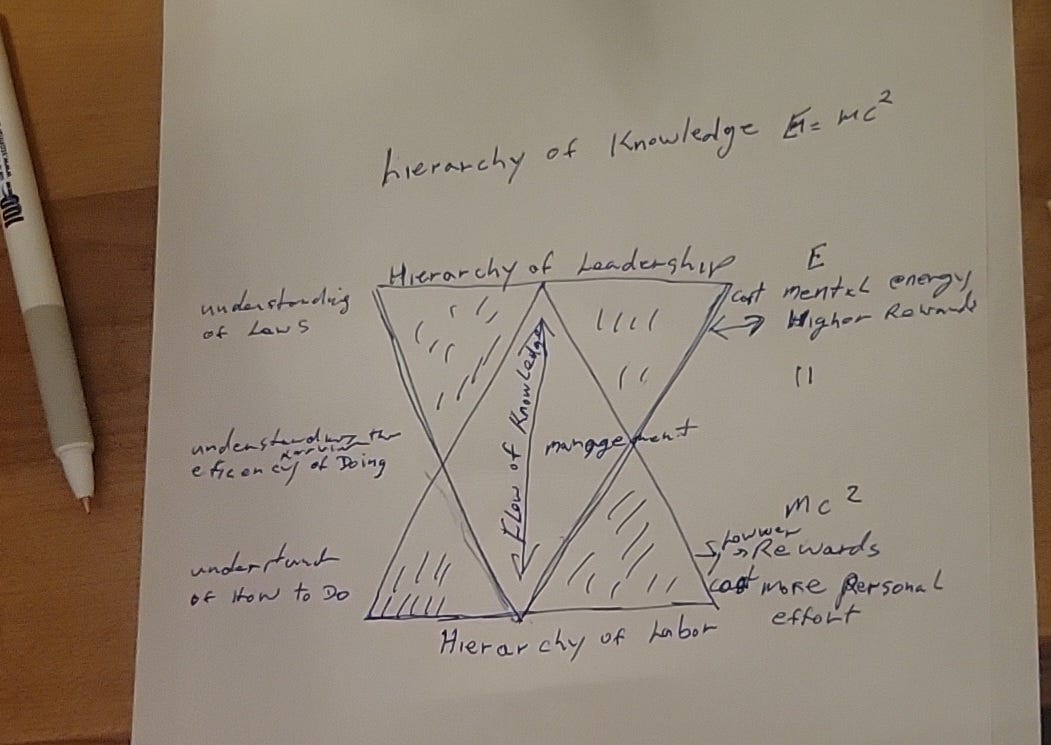 hierarchy of Knowledge E = mc²
Hierarchy of Leadership
understanding
of Laws
E
cost mental energy
Higher Rewards
Flow of Knowledge
management
understanding the
eficency of Doing
mc²
Lowwer
Rewards
cost more personal
effort
understand
of How to Do
Hierarchy of Labor